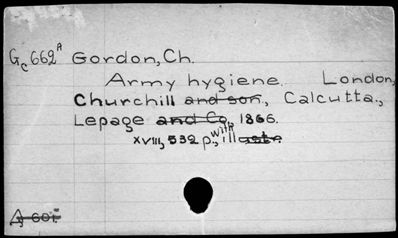 Gc 662A Gordon, Ch.
Army hygiene. London,
Churchill and son., Calcutta.,
Lepage and Co, 1866.
XVIII, 532 p., with ill
A 601.